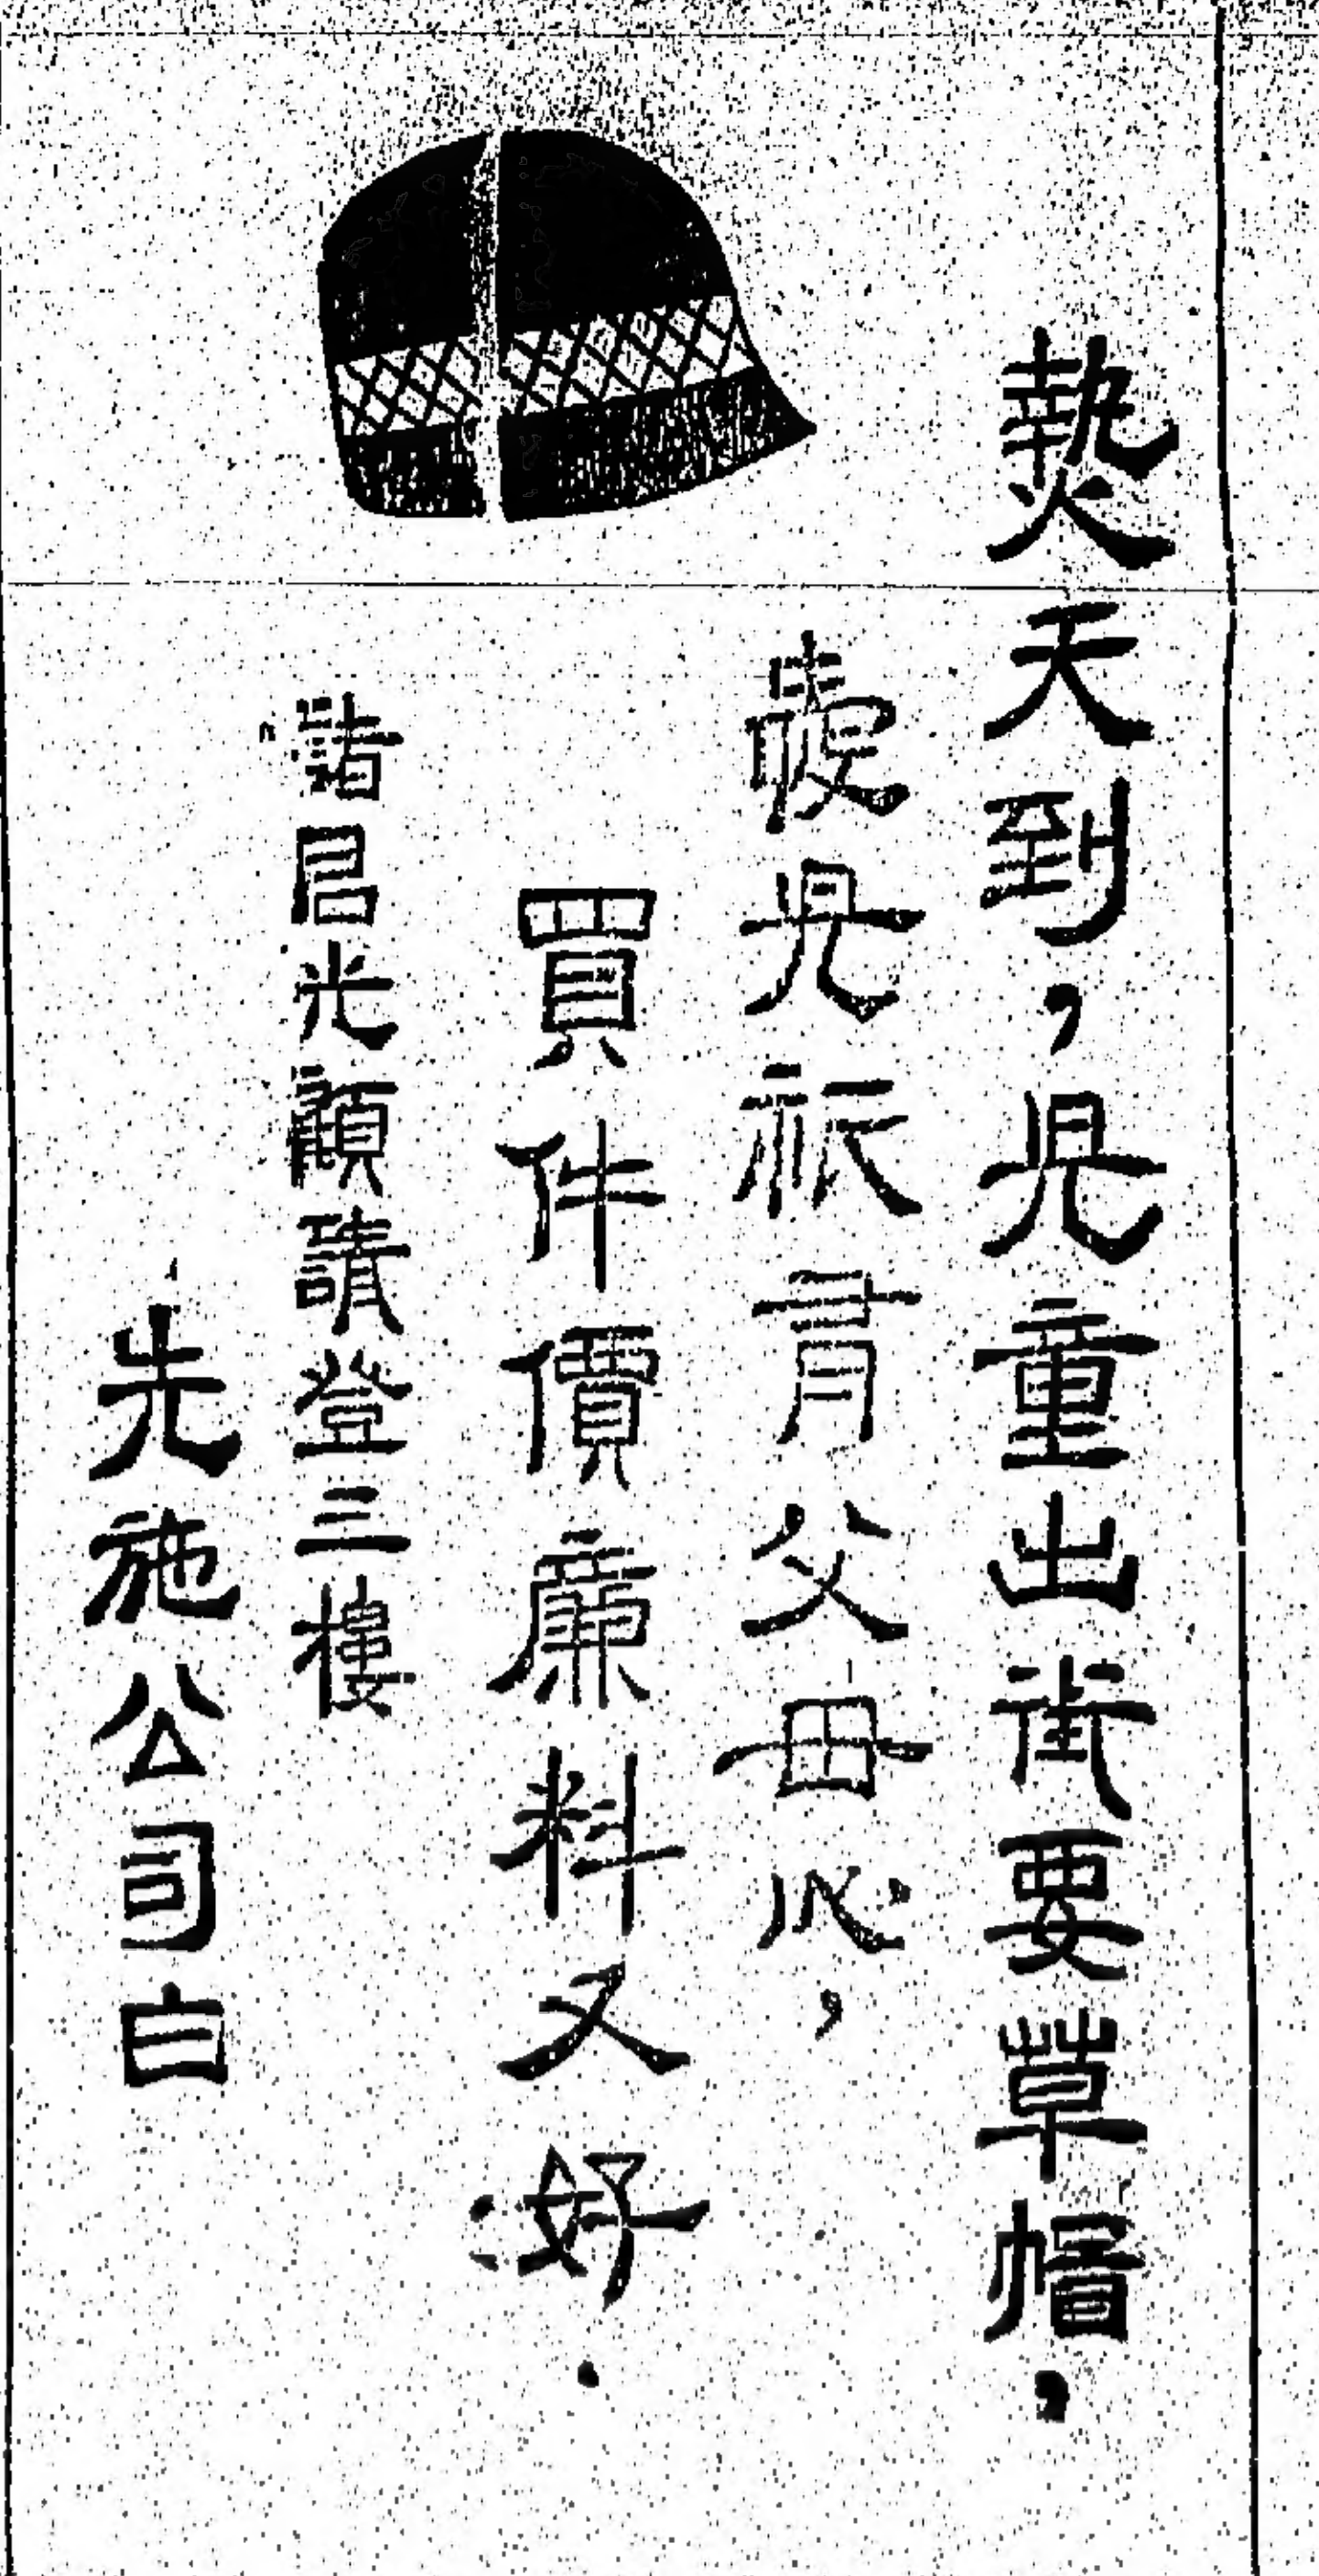 熱天到，兒童出街要草帽，
兒祇有父母心，
買件價廉料又好．
諸君光顧請登三樓
先施公司白